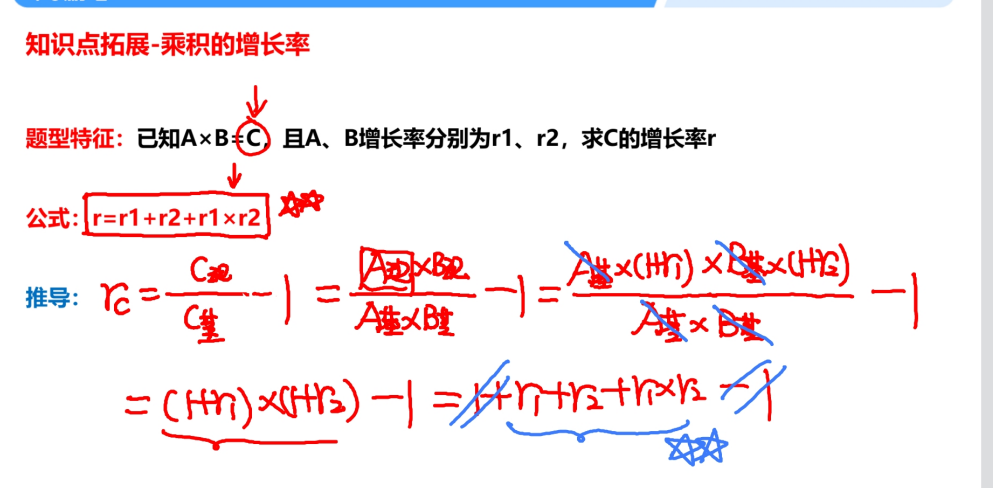 知识点拓展-乘积的增长率
题型特征：已知A×B=C，且A、B增长率分别为r1、r2，求C的增长率r
公式：r=r1+r2+r1×r2
推导：rc = C现/C基 - 1 = A现×B现/A基×B基 - 1 = A基×(1+r1)×B基×(1+r2)/A基×B基 - 1
= (1+r1)×(1+r2) - 1 = 1+r1+r2+r1×r2 - 1